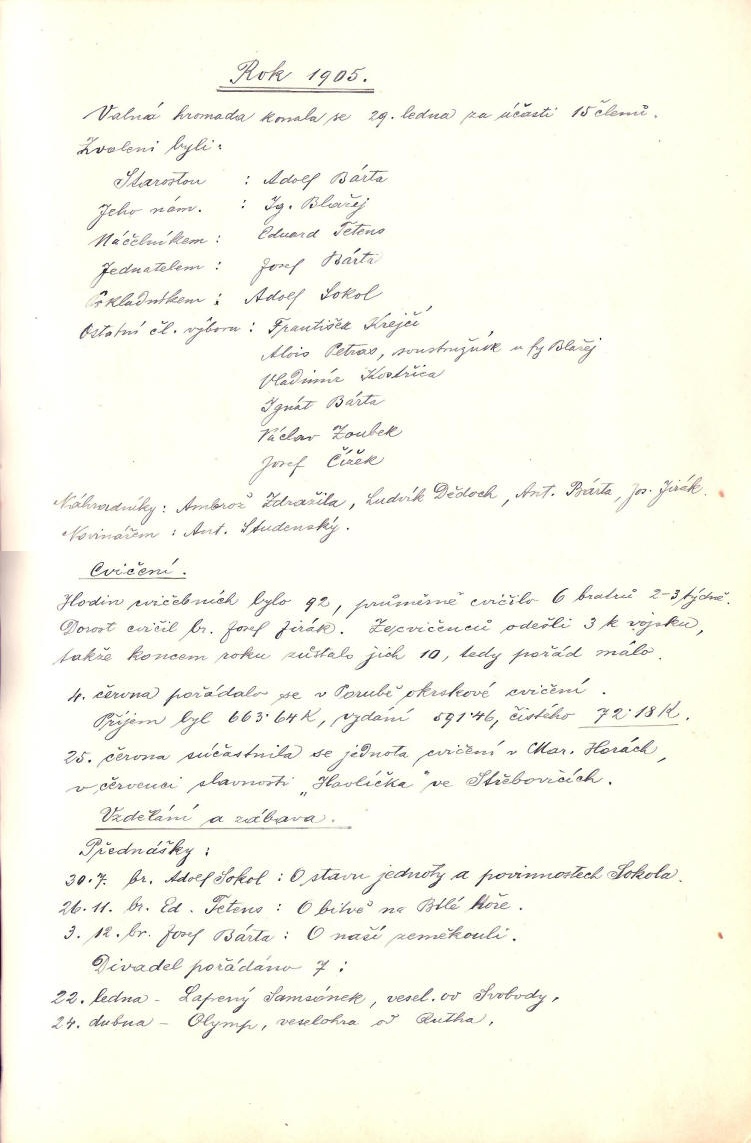 Rok 1905.
Valná hromada konala se 29. ledna za účasti 15 členů.
Zvoleni byli:
Starostou : Adolf Bárta
Jeho nám. : Ig. Blažej
Náčelníkem : Eduard Tetens
Jednatelem : Josef Bárta
Pokladníkem : Adolf Sokol
Ostatní čl. výboru : František Krejčí
Alois Petras, soustružník u fy Blažej
Vladimír Kostřica
Ignát Bárta
Václav Zoubek
Josef Čížek
Náhradníky: Ambrož Zdražila, Ludvík Dědoch, Ant. Bárta, Jos. Jirák.
Novinářem : Ant. Studenský.
Cvičení.
Hodin cvičebních bylo 92, průměrně cvičilo 6 bratrů 2-3 týdně.
Dorost cvičil br. Josef Jirák. Ze cvičenců odešli 3 k vojsku,
takže koncem roku zůstalo jich 10, tedy pořád málo.
4. června pořádalo se v Porubě okrskové cvičení.
Příjem byl 663·64 K, vydání 591·46, čistého 72·18 K.
25. června súčastnila se jednota cvičení v Mar. Horách,
v červenci slavnosti „Havlíčka" ve Střebovicích.
Vzdělání a zábava.
Přednášky :
30.7. br. Adolf Sokol : O stavu jednoty a povinnostech Sokola.
26.11. br. Ed. Tetens : O bitvě na Bílé Hoře.
3. 12. br. Josef Bárta : O naší zeměkouli.
Divadel pořádáno 7 :
22. ledna - Samsónek, vesel. od Svobody,
24. dubna - Olymp, veselohra od Rutha,